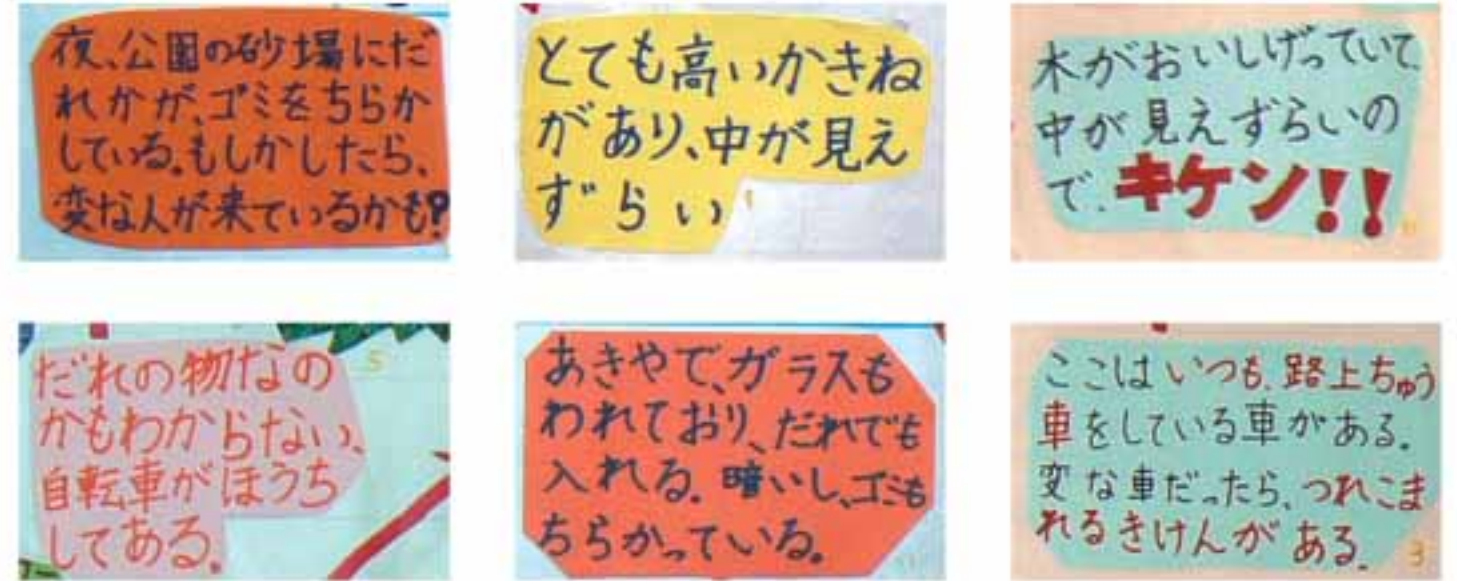 夜、公園の砂場にだ
れかが、ゴミをちらか
している。もしかしたら、
変な人が来ているかも?
とても高いかきね
があり、中が見え
ずらい
木がおいしげっていて
中が見えずらいの
で、キケン!!
だれの物なの
かもわからない、
自転車がほうち
してある。
5
あきやで、ガラスも
われており、だれでも
入れる。暗いし、ゴミも
ちらかっている。
ここはいつも、路上ちゅう
車をしている車がある。
変な車だったら、つれこま
れるきけんがある。
3